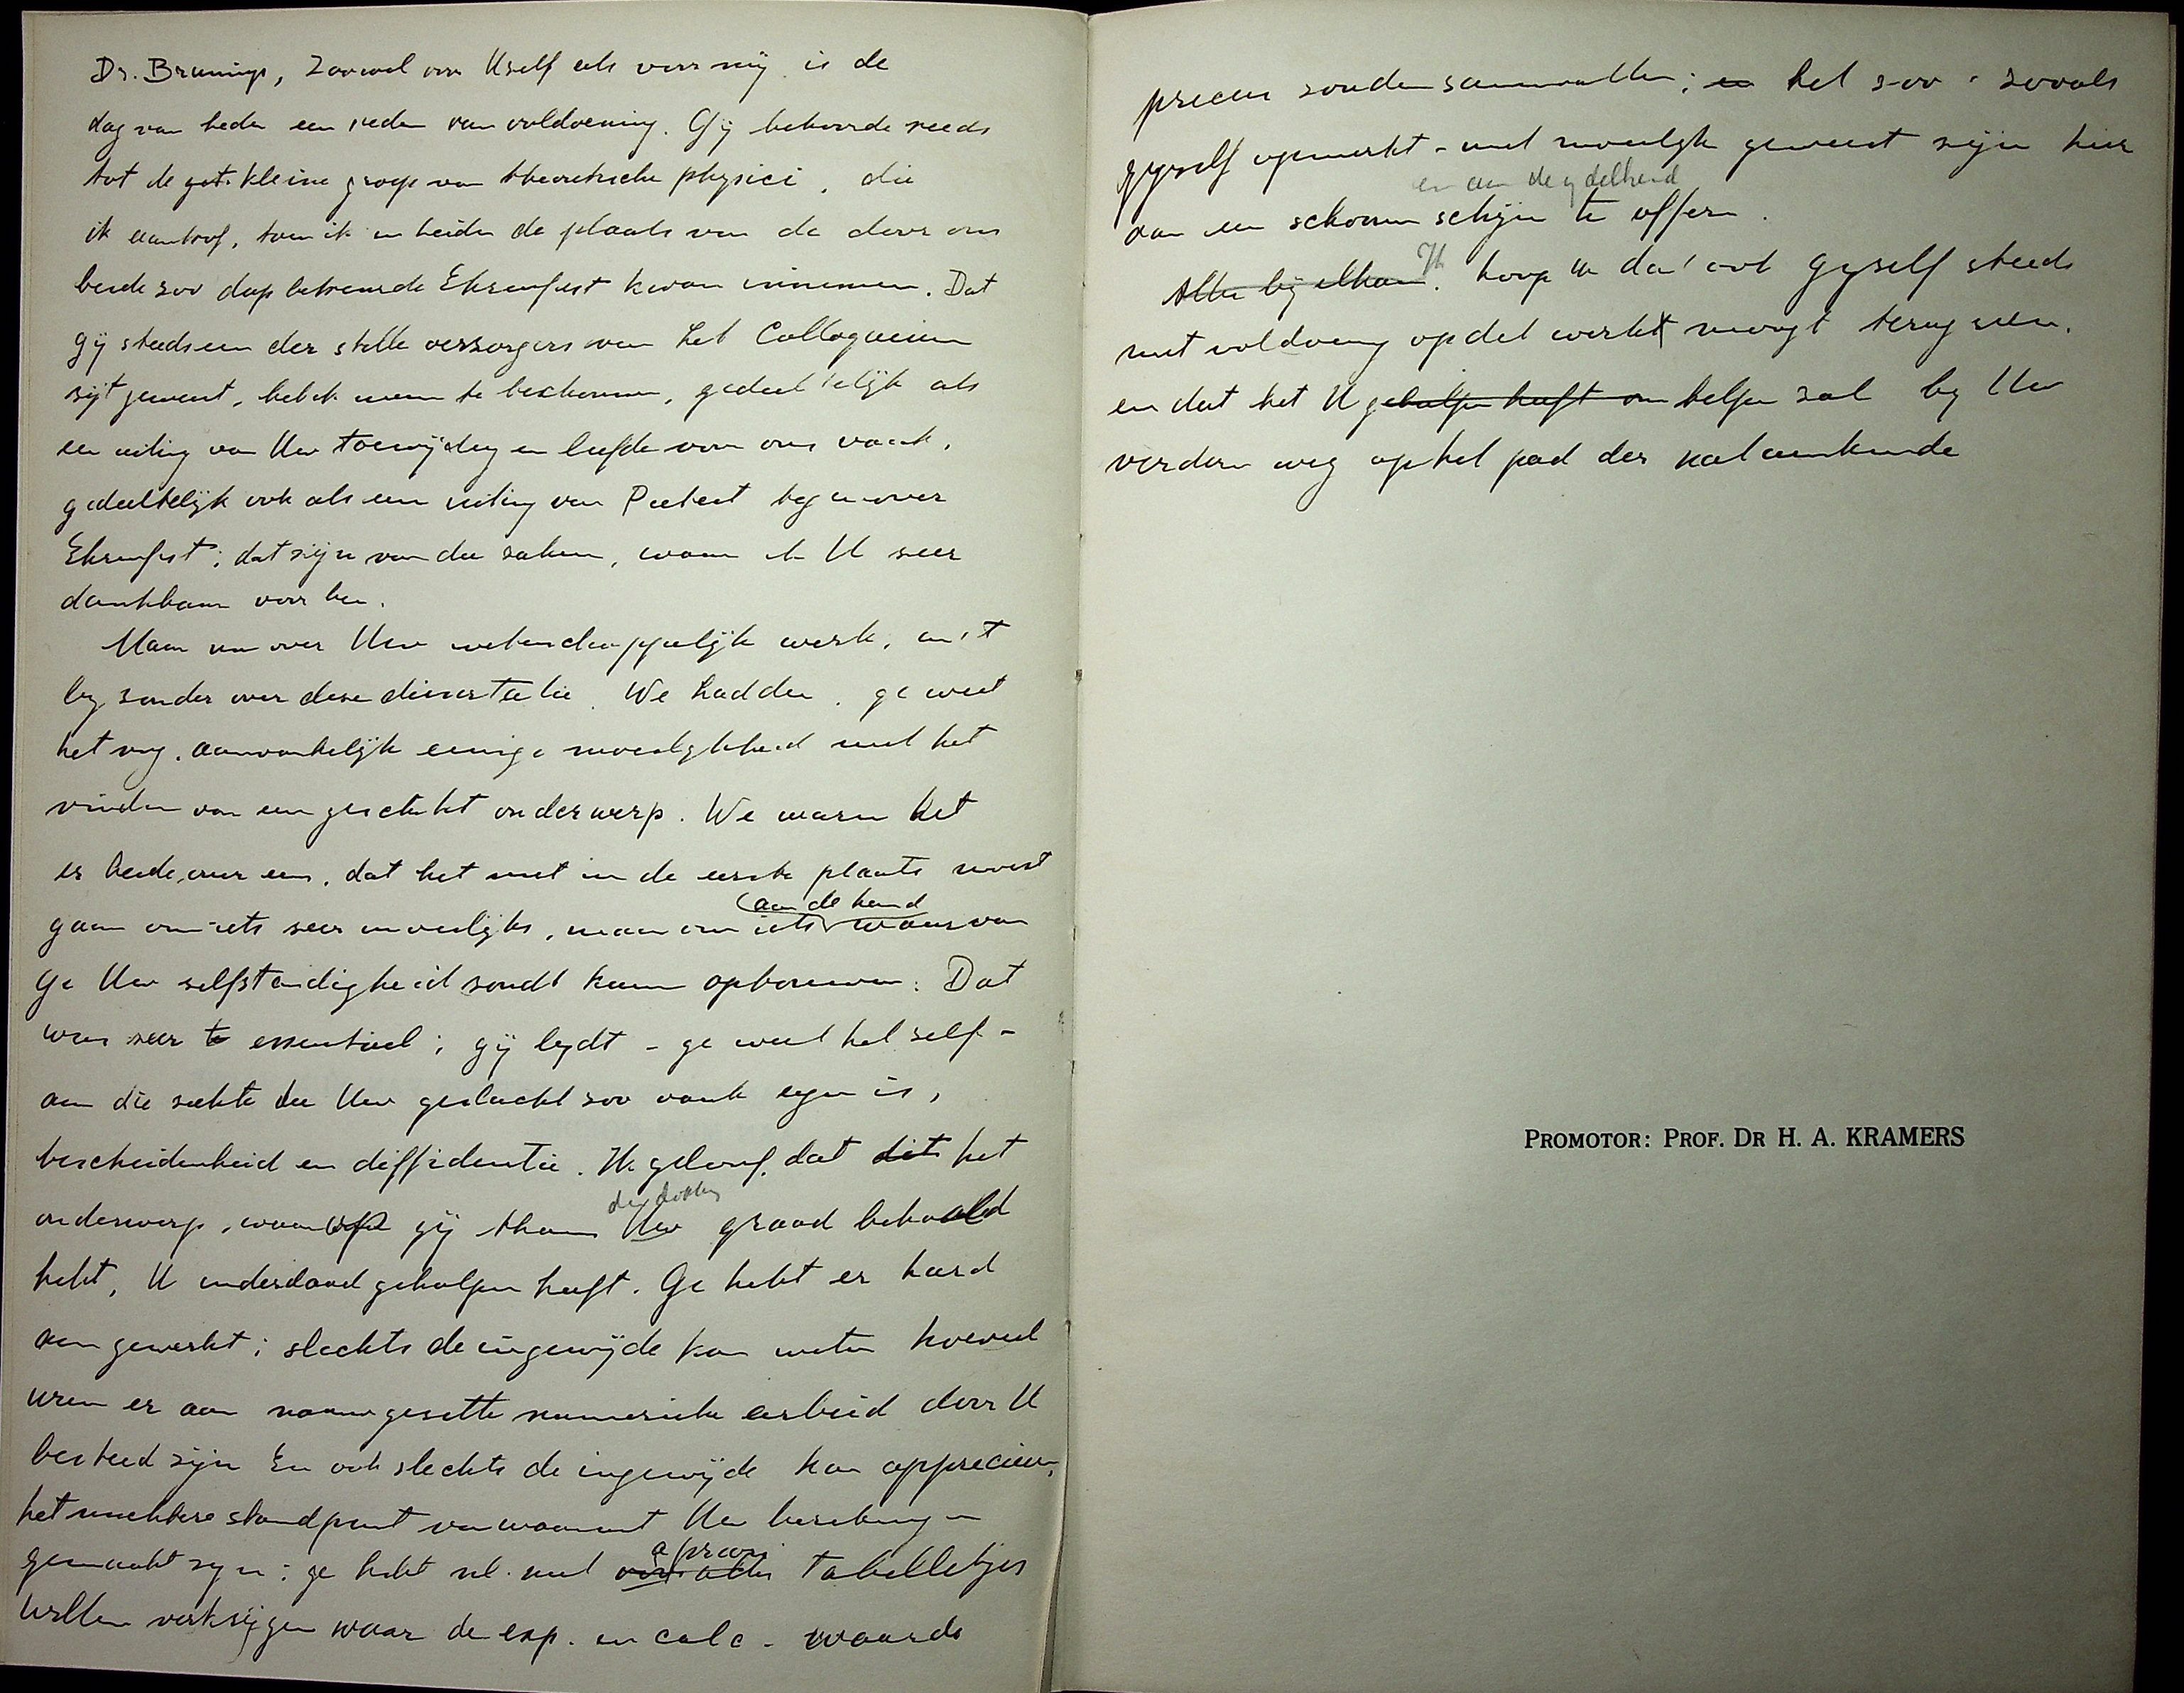 Dr. Brunings, zoowel voor Uself als voor mij is de
dag van heden een reden van voldoening. Gij behoorde reeds
tot de kleine groep van theoretische physici, die
ik aantrof, toen ik in Leiden de plaats van de door ons
beide zoo diep betreurde Ehrenfest kwam innemen. Dat
gij steeds een der stille verzorgers van het Colloquium
zijt geweest, heb ik meen te beschouwen, gedeeltelijk als
een uiting van Uw toewijding en liefde voor ons vaak,
gedeeltelijk ook als een uiting van Pieteit tegenover
Ehrenfest; dat zijn van die zaken, waar ik U zeer
dankbaar voor ben.
Maar nu over Uw wetenschappelijk werk, in 't
byzonder over deze dissertatie. We hadden, ge weet
het nog, aanvankelijk eenige moeilykheid met het
vinden van een geschikt onderwerp. We waren het
er beide over eens, dat het niet in de eerste plaats moest
gaan om iets zeer moeilijks, maar om iets aan de hand waarvan
ge Uw zelfstandigheid zoudt kunnen opbouwen. Dat
was zeer te essentieel; gij lydt – ge weet het zelf –
aan die ziekte die Uw geslacht zoo vaak eigen is,
bescheidenheid en diffidentie. Ik geloof, dat dit het
onderwerp, waarop gij thans Uw graad behaald
hebt, U inderdaad geholpen heeft. Ge hebt er hard
aan gewerkt; slechts de ingewijde kan weten hoeveel
uren er aan nauwgezette numerieke arbeid door U
besteed zijn En ook slechts de ingewijde kan appreciëren,
het nuchtere standpunt van waaruit Uw berekeningen
gemaakt zyn; ge hebt nl. niet a priori tabelletjes
willen verkrijgen waar de exp. en calc. waarde
precies zouden samenvallen; en het zoo – zooals
gyzelf opmerkt – niet moeilyk geweest zijn hier
en aan de ydelheid
aan een schoonen schijn te offeren.
Alles bij elkaar. Ik hoop U dat ook gyself steeds
met voldoening op dit werk moogt terug zien.
en dat het U geholpen heeft om helpen zal by Uw
verdere weg op het pad der natuurkunde
PROMOTOR: PROF. DR H. A. KRAMERS